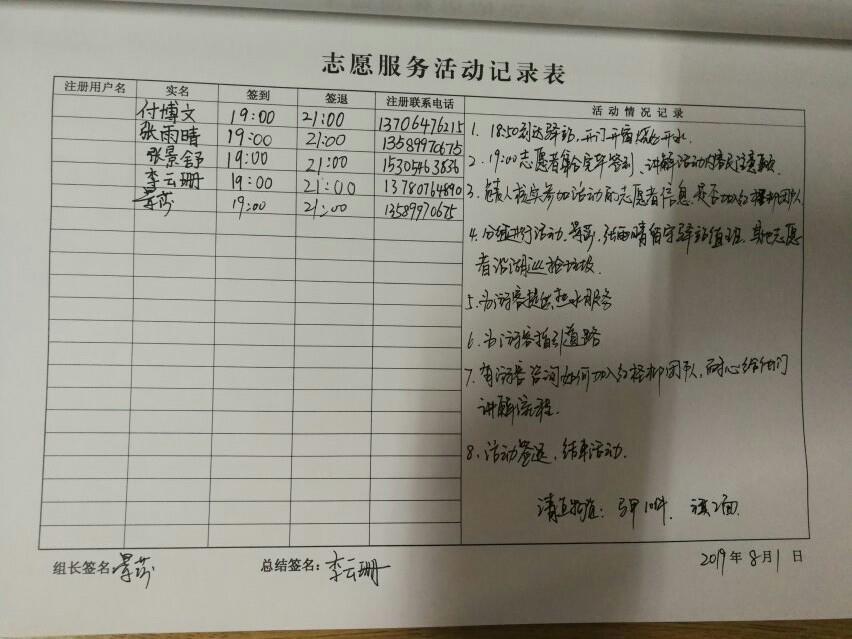 志愿服务活动记录表
注册用户名 实名 签到 签退 注册联系电话 活动情况记录
付博文 19:00 21:00 13706476215
张雨晴 19:00 21:00 13589970675
张景舒 19:00 21:00 15305463836
李云珊 19:00 21:00 13780764890
19:00 21:00 13589970675
1. 18:50到达驿站,开门开窗烧开水.
2. 19:00志愿者集合完毕签到、讲解活动内容及注意事项
3. 负责人核实参加活动的志愿者信息,是否加入红柽柳团队
4. 分组进行活动. 张雨晴留守驿站值班. 其他志愿
者沿湖巡捡垃圾.
5. 为游客提供热水服务
6. 为游客指引道路
7. 有游客咨询如何加入红柽柳团队,耐心给他们
讲解流程.
8. 活动签退,结束活动.
10件. 2面
组长签名: 总结签名:李云珊 2019年8月1日